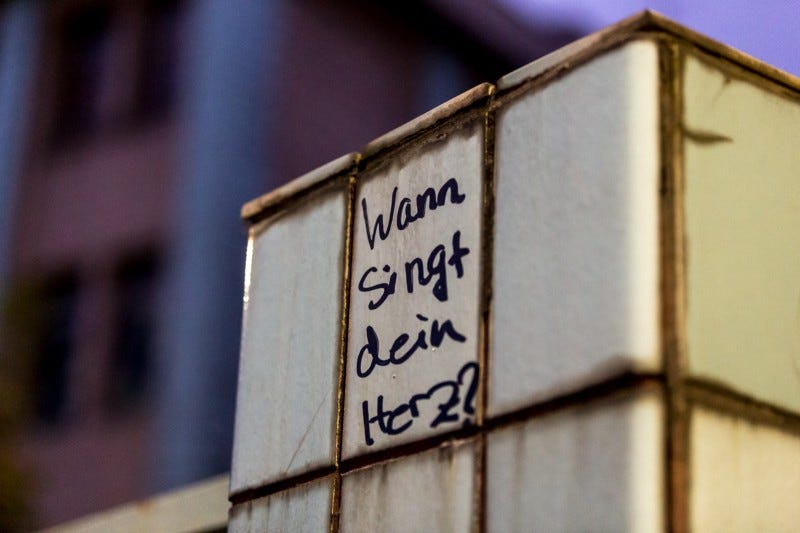 Wann
singt
dein
Herz?